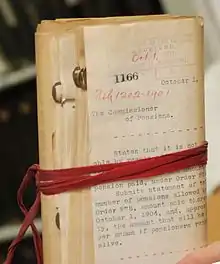 Oct 1,
1166 October 1,
Feb 1202-1901
The Commissioner
of Pensions.
States that it is not
able by
pension paid, under Order
Submit statement of the
number of pensions allowed
Order #78, amount paid there
October 1, 1904, and, appro
ly, the amount that will be
per annum if pensioners
alive.